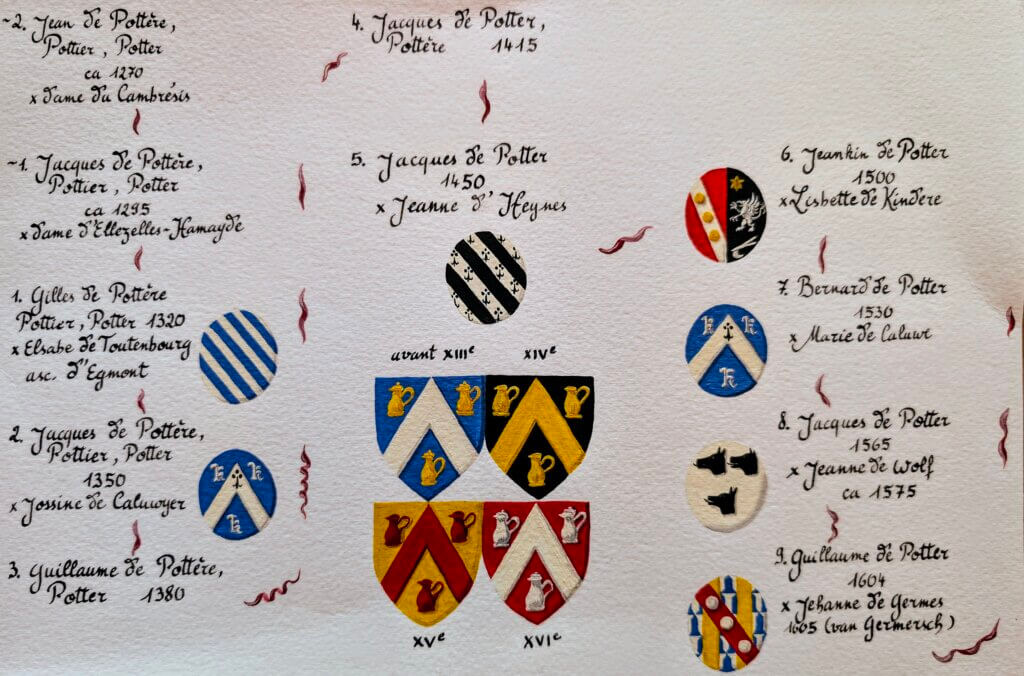 ~2. Jean de Pottère,
Pottier, Potter
ca 1270
x dame du Cambrésis
~1. Jacques de Pottère,
Pottier, Potter
ca 1295
x dame d'Ellezelles-Hamayde
1. Gilles de Pottère
Pottier, Potter 1320
x Elsabe de Toutenbourg
asc. d'Egmont
2. Jacques de Pottère,
Pottier, Potter
1350
x Jossine de Caluwyer
3. Guillaume de Pottère,
Potter 1380
4. Jacques de Potter,
Pottère 1415
5. Jacques de Potter
1450
x Jeanne d'Heynes
avant XIIIe
XIVe
XVe
XVIe
6. Jeankin de Potter
1500
x Lisbette de Kindere
7. Bernard de Potter
1530
x Marie de Caluwr
8. Jacques de Potter
1565
x Jeanne de Wolf
ca 1575
9. Guillaume de Potter
1604
x Jehanne de Germes
1605 (van Germersch)